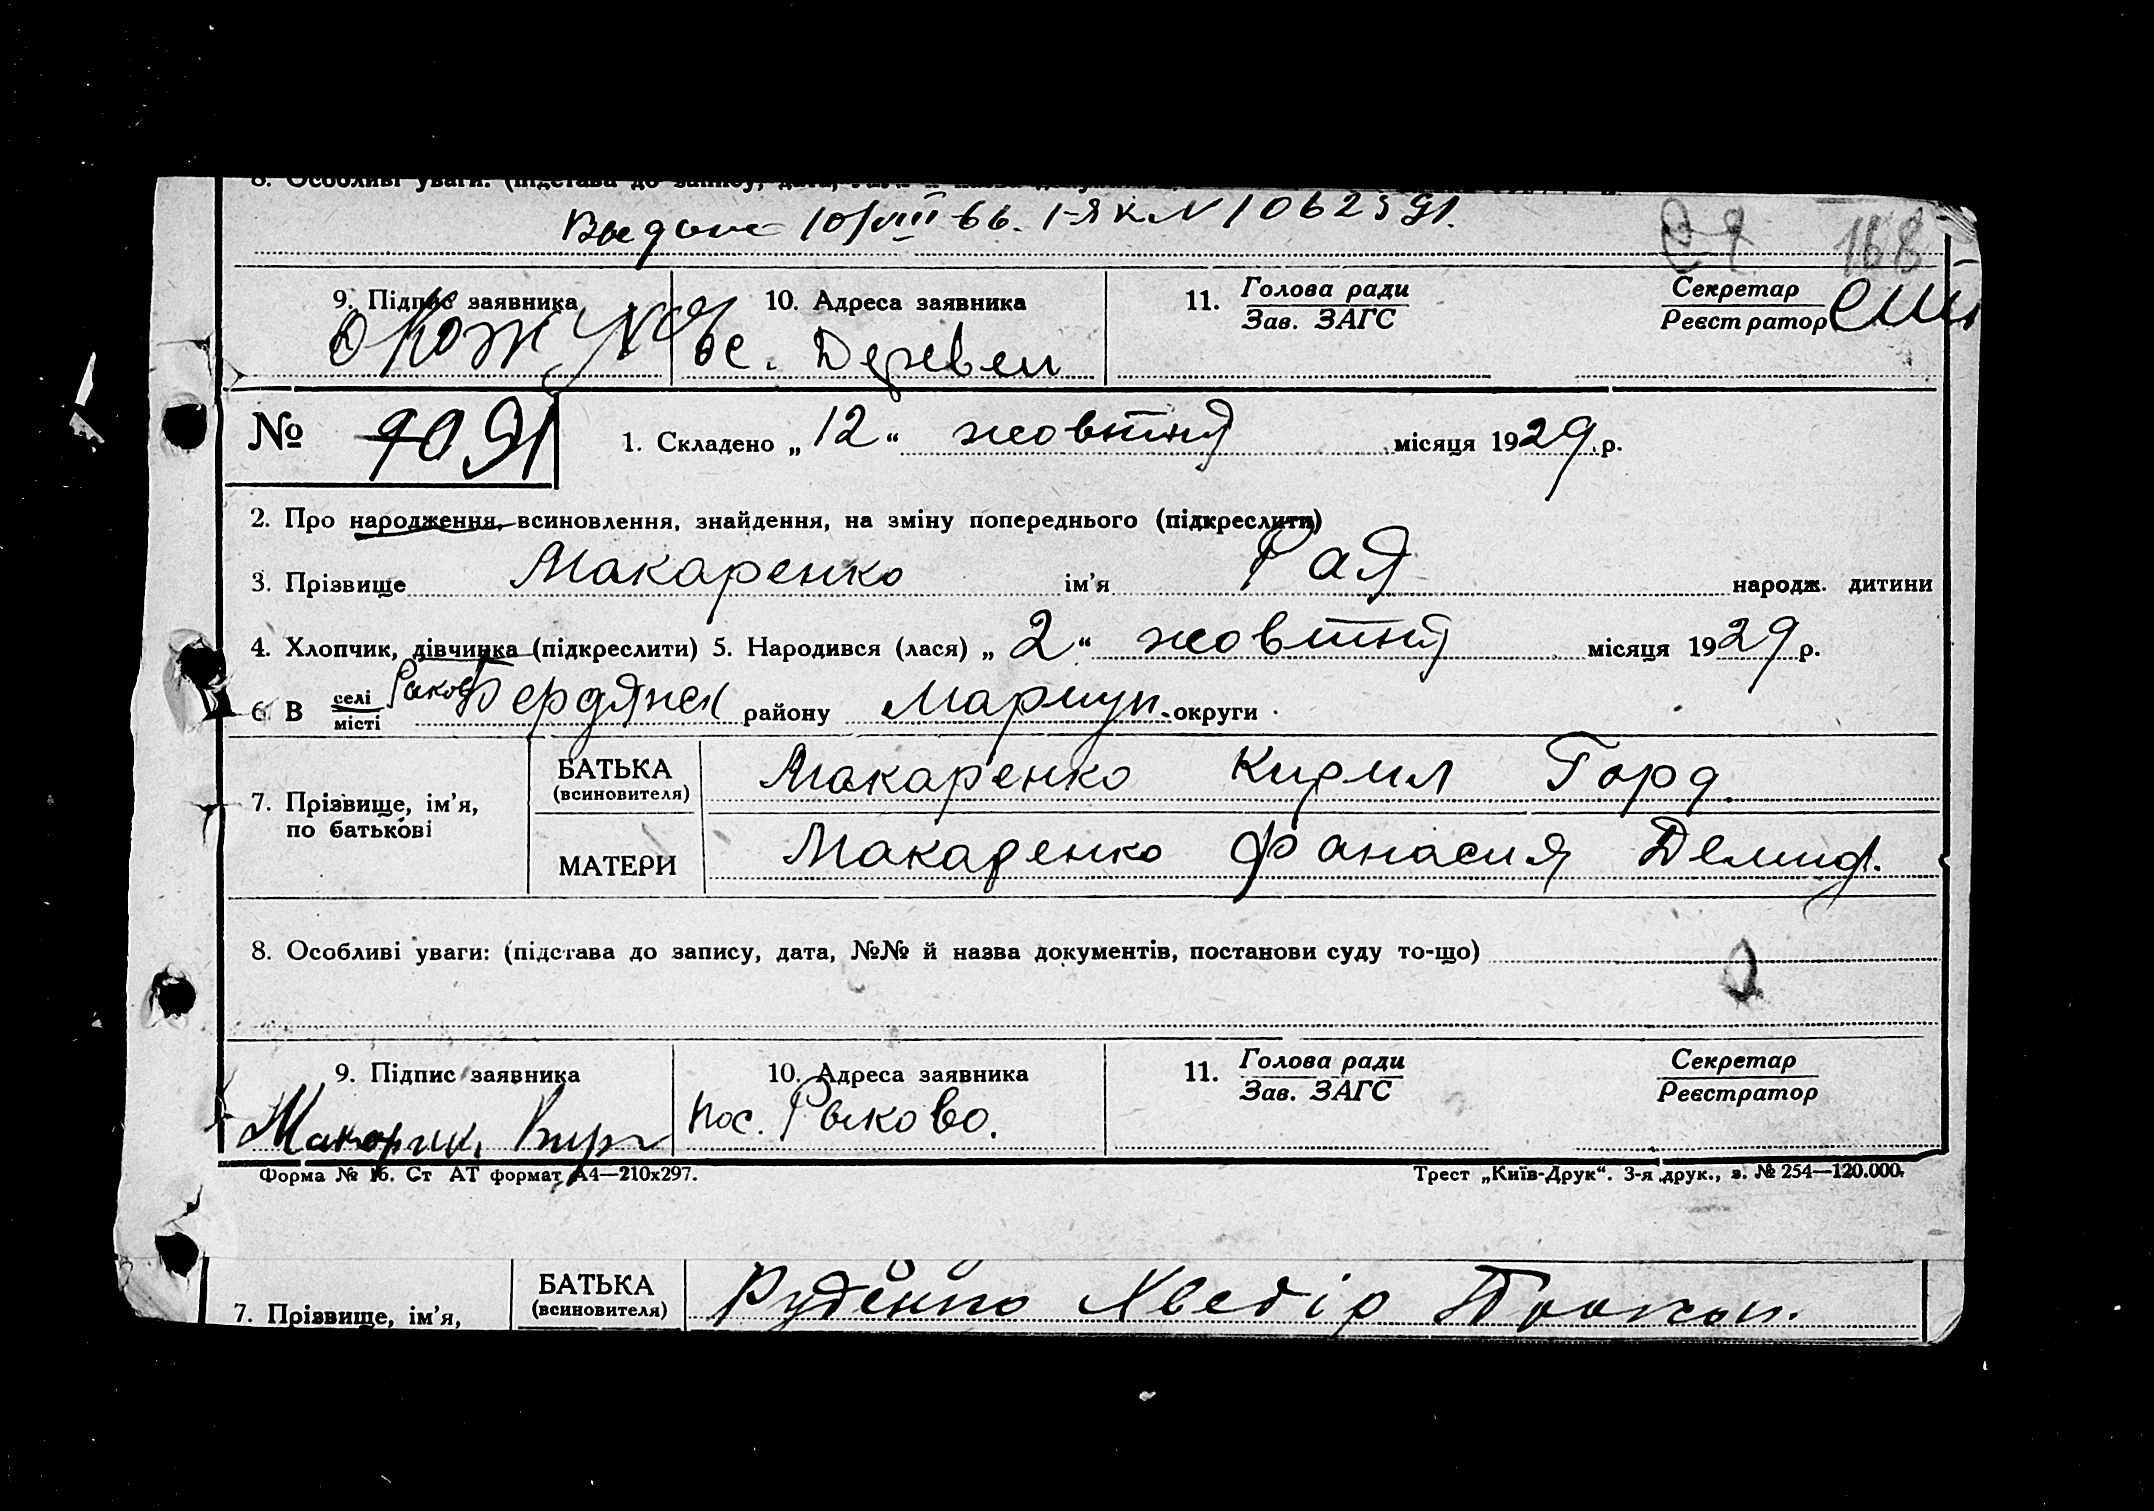 8. Особливі уваги: (підстава до запису, дата, №№ й назва
Выдано 10/VIII-66. I-ЯК N 1062591.
168
9. Підпис заявника 10. Адреса заявника 11. Голова ради Секретар
Зав. ЗАГС Реєстратор
с.
№ 1. Складено „12“ жовтня місяця 1929 р.
2. Про народження, всиновлення, знайдення, на зміну попереднього (підкреслити)
3. Прізвище Макаренко ім'я Рая народж. дитини
4. Хлопчик, дівчинка (підкреслити) 5. Народився (лася) „2“ жовтня місяця 1929 р.
6. В селі Бердянськ району Мариуп. округи
місті
7. Прізвище, ім'я, по батькові
БАТЬКА (всиновителя) Макаренко Кирил Горд.
МАТЕРИ Макаренко Фанасия Демид.
8. Особливі уваги: (підстава до запису, дата, №№ й назва документів, постанови суду то-що)
9. Підпис заявника 10. Адреса заявника 11. Голова ради Секретар
Зав. ЗАГС Реєстратор
пос. Рыково.
Форма № 16. Ст АТ формат А4—210х297. Трест „Київ-Друк“. 3-я друк., з. № 254—120.000.
7. Прізвище, ім'я, БАТЬКА (всиновителя) Руденко Хведір